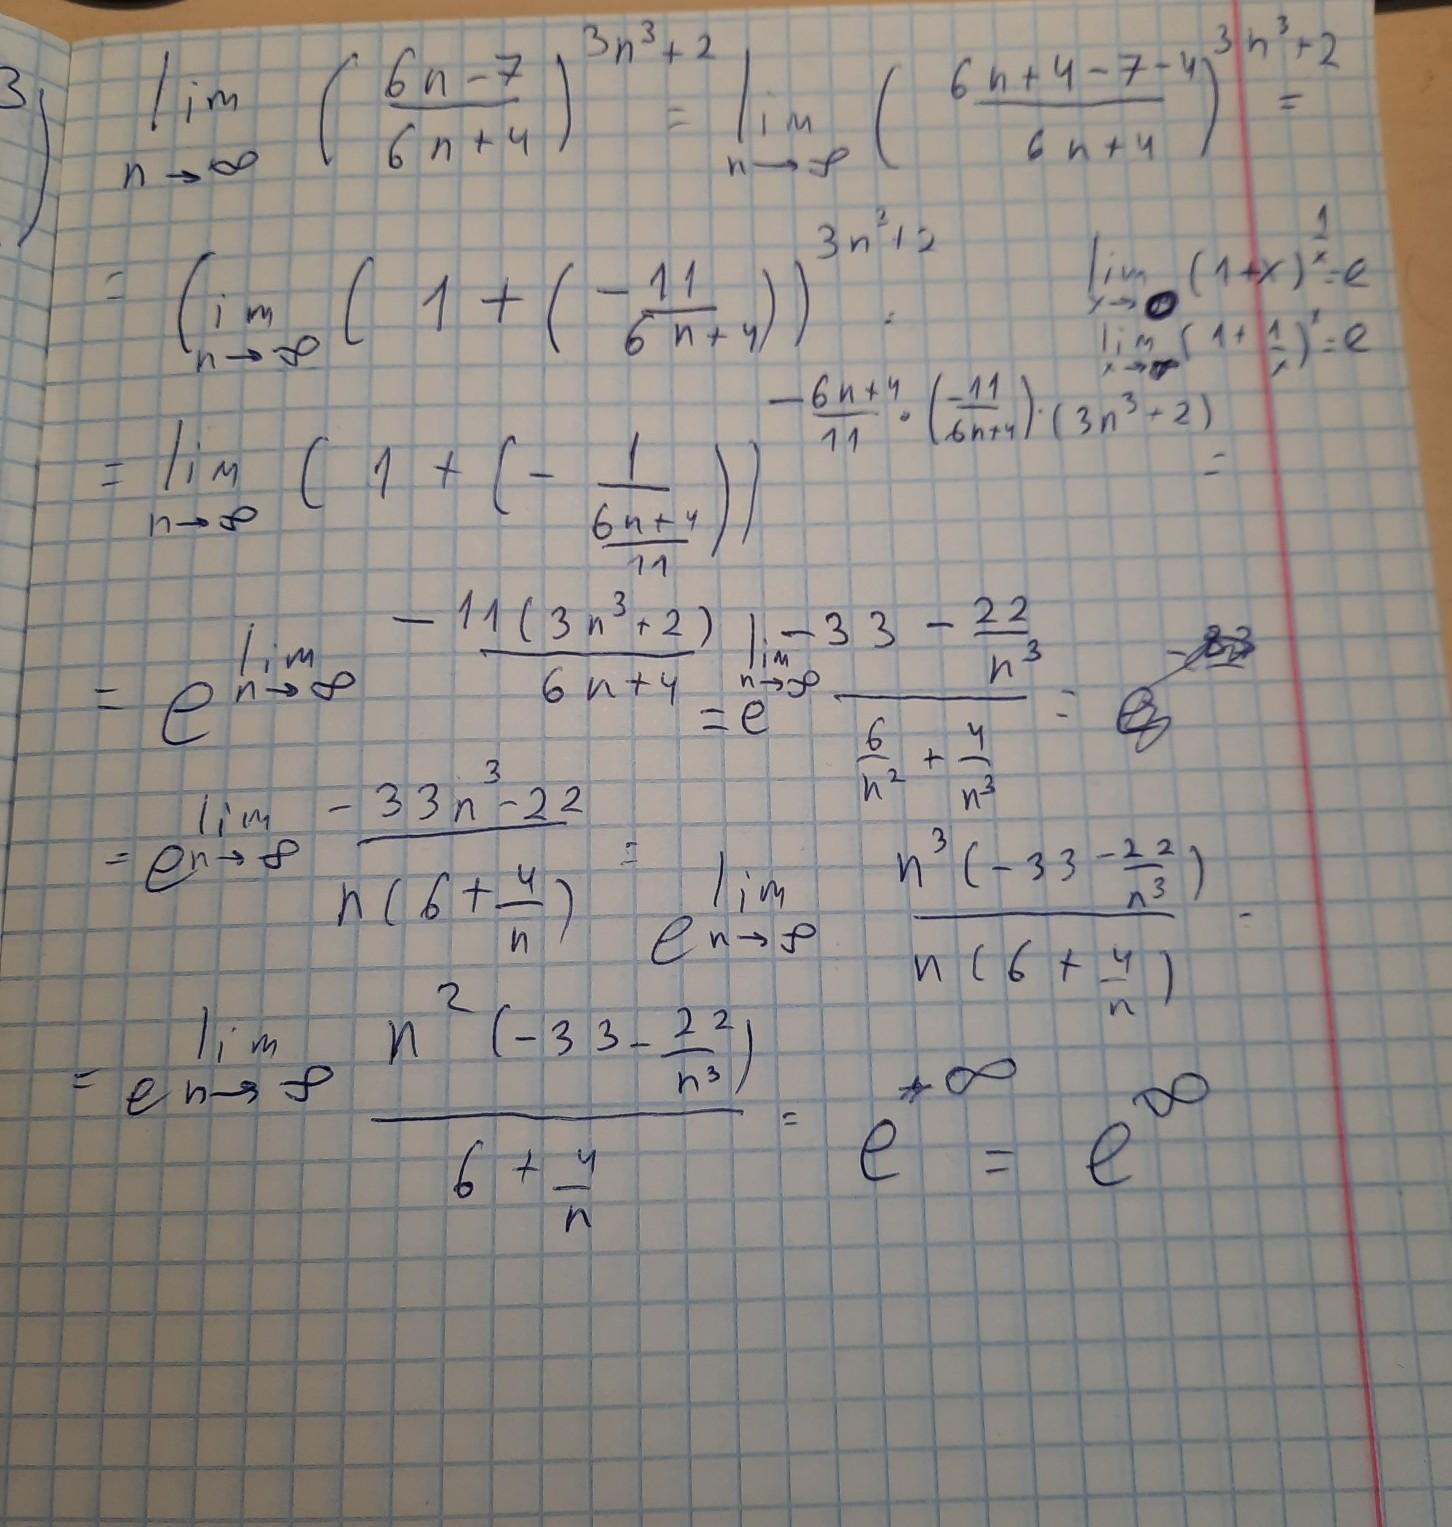 3) lim n→∞ ((6n-7)/(6n+4))^(3n³+2) = lim n→∞ ((6n+4-7-4)/(6n+4))^(3n³+2) =
= (lim n→∞ (1 + (-11/(6n+4)))^(3n³+2) =
lim x→0 (1+x)^(1/x) = e
lim x→∞ (1+1/x)^x = e
= lim n→∞ (1 + (-1/((6n+4)/11)))^(-(6n+4)/11 · (-11/(6n+4)) · (3n³+2)) =
= e^(lim n→∞ -11(3n³+2)/(6n+4)) = e^(lim n→∞ (-33 - 22/n³)/(6/n² + 4/n³)) =
= e^(lim n→∞ (-33n³-22)/(n(6+4/n))) = e^(lim n→∞ n³(-33-22/n³)/(n(6+4/n))) =
= e^(lim n→∞ n²(-33-22/n³)/(6+4/n)) = e^(+∞) = e^∞